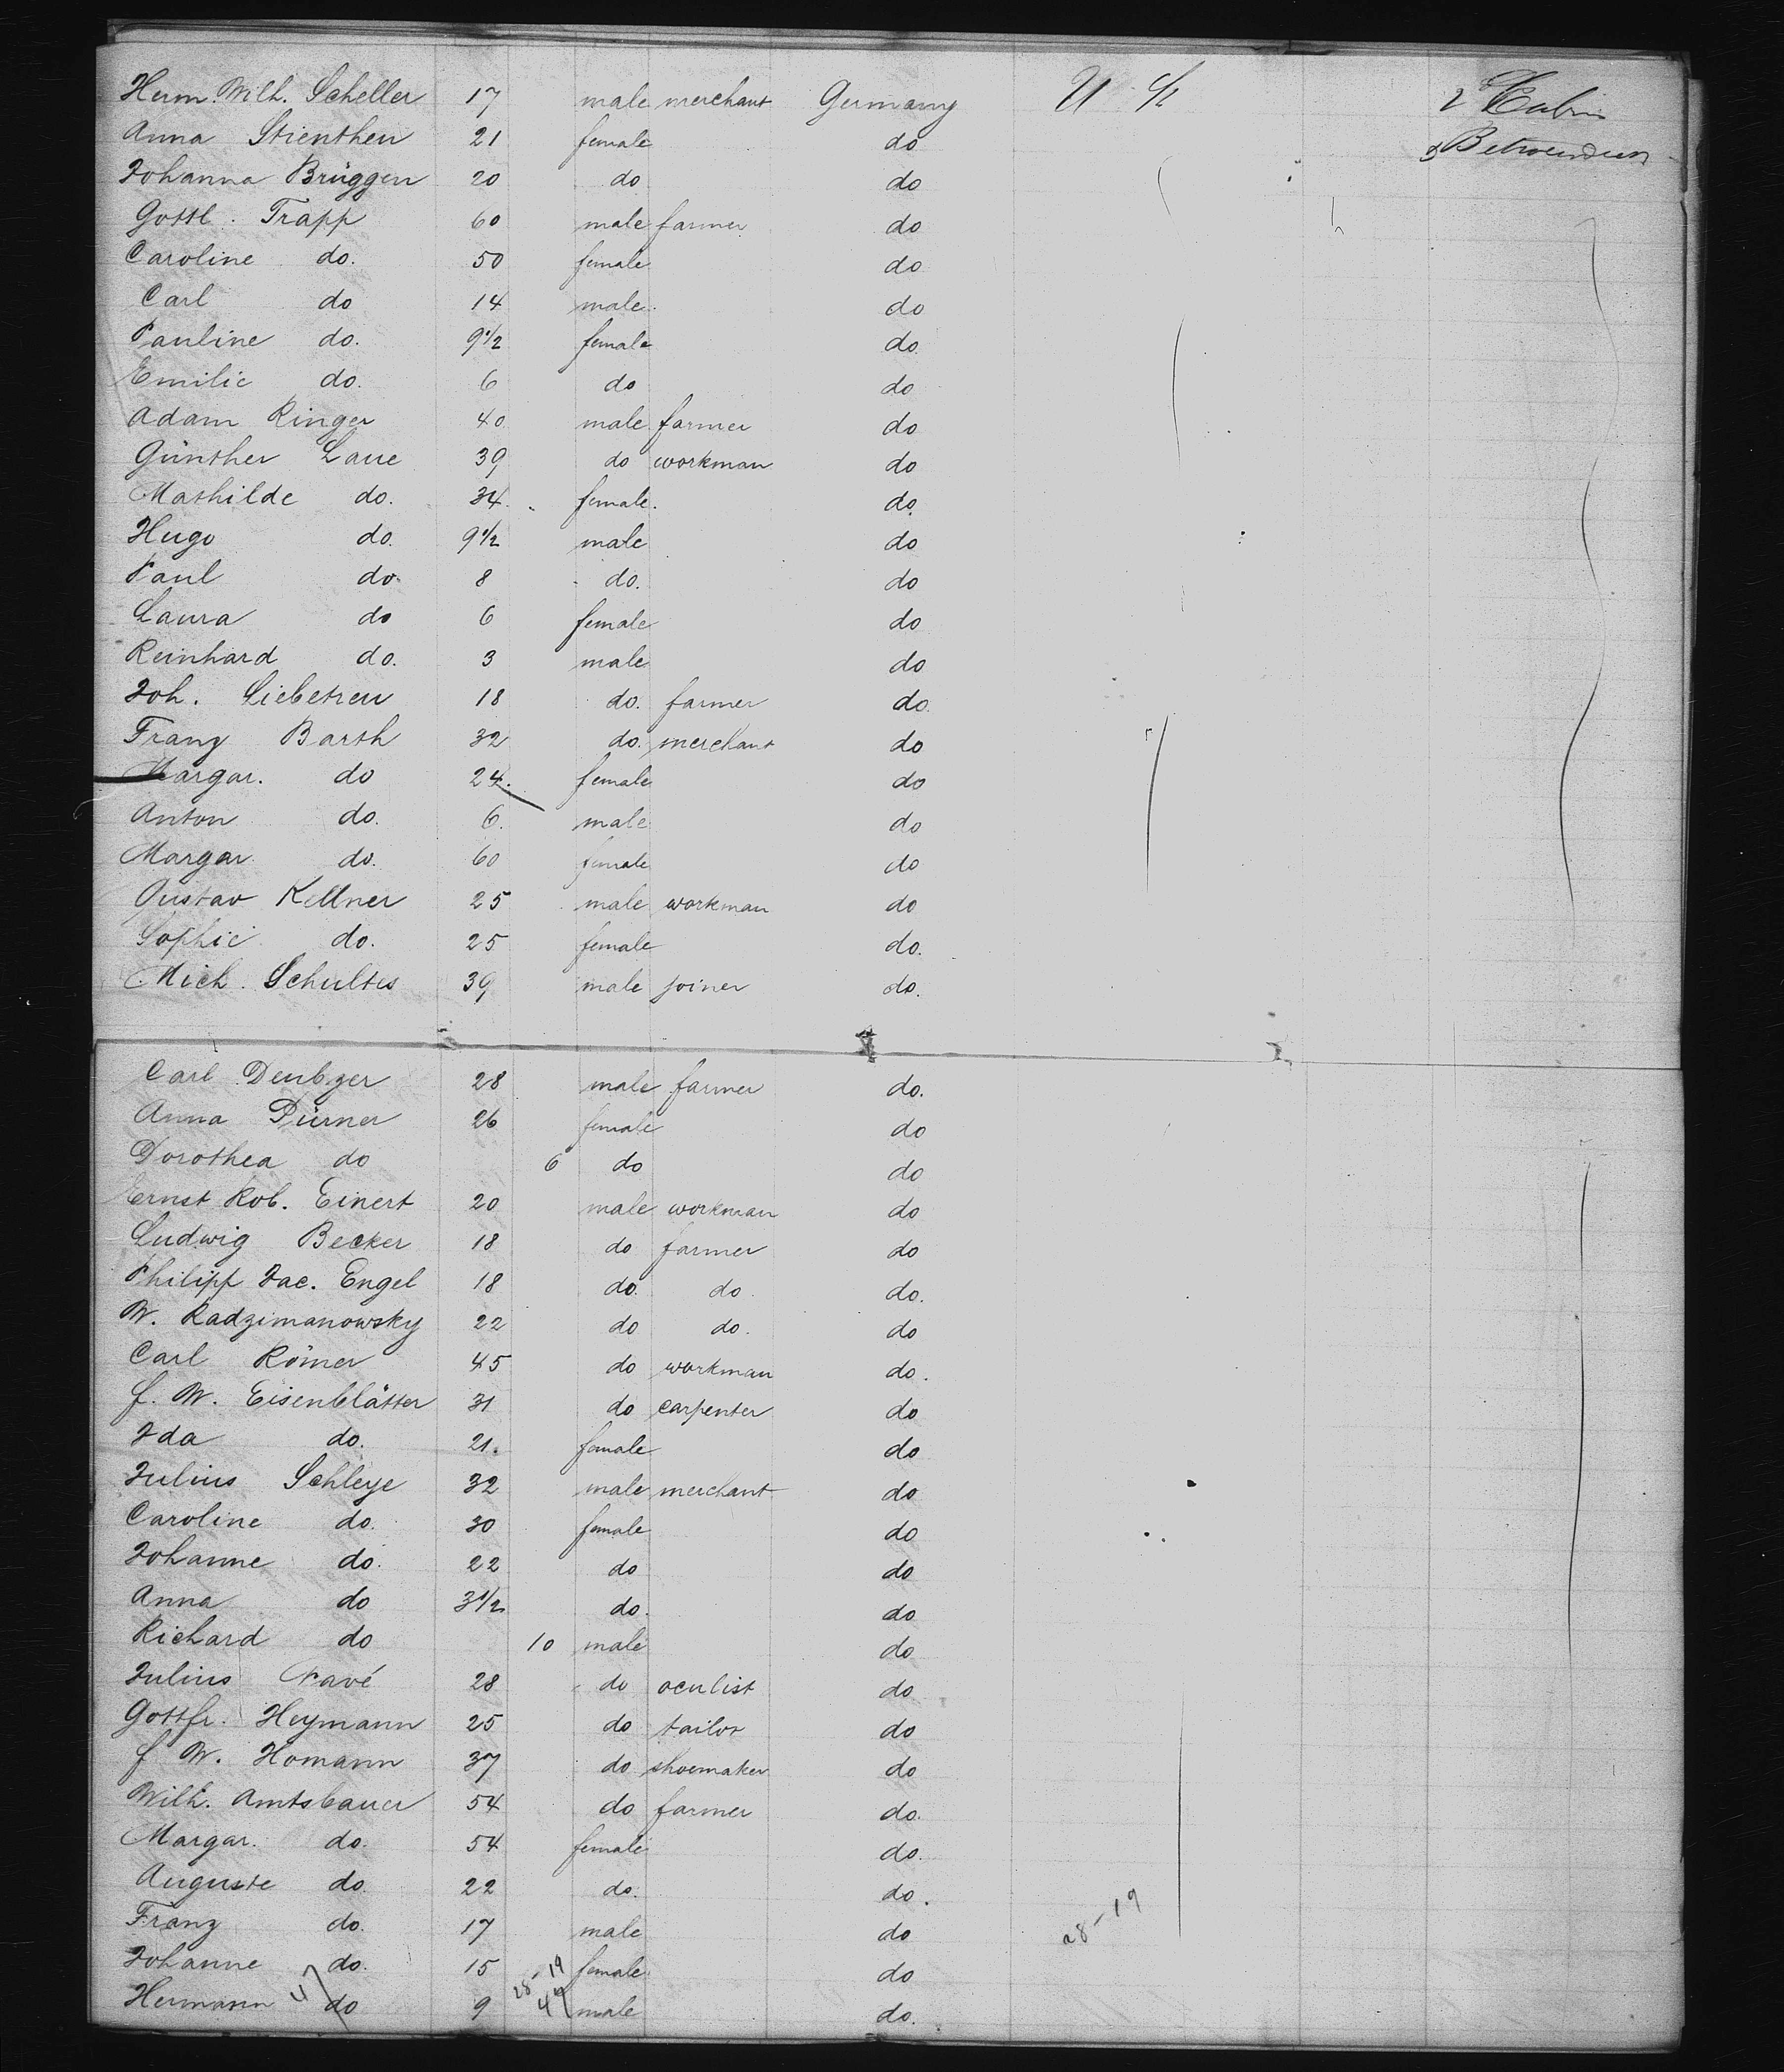 Herm. Wilh. Scheller 17 male merchant Germany U St 2 Cabin
Anna Stienthen 21 female do & Betweendeck
Johanna Brüggen 20 do do
Gottl. Trapp 60 male farmer do
Caroline do. 50 female do
Carl do 14 male. do
Pauline do. 9 1/2 female do
Emilie do. 6 do do
Adam Ringer 40 male farmer do
Günther Laue 39 do workman do
Mathilde do. 34. female. do.
Hugo do. 9 1/2 male do
Paul do 8 do. do
Laura do 6 female do
Reinhard do. 3 male do
Joh. Liebetreu 18 do. farmer do.
Franz Barth 32 do. merchant do
Margar. do 24. female do
Anton do. 6. male do
Margar. do. 60 female do
Gustav Kellner 25 male workman do
Sophie do. 25 female do.
Mich. Schultes 39 male joiner do.
Carl Deubzer 28 male farmer do.
Anna Pürner 26 female do
Dorothea do 6 do do
Ernst Rob. Einert 20 male workman do
Ludwig Becker 18 do farmer do
Philipp Jac. Engel 18 do. do. do.
W. Radzimanowsky 22 do do. do
Carl Römer 45 do workman do.
F. W. Eisenblätter 31 do carpenter do
Ida do. 21. female do
Julius Schleye 32 male merchant do
Caroline do. 30 female do
Johanne do. 22 do do
Anna do 3 1/2 do. do
Richard do 10 male do
Julius Navé 28 do oculist do
Gottfr. Heymann 25 do tailor do
F W. Homann 37 do shoemaker do
Wilh. Amtsbauer 54 do farmer do.
Margar. do. 54 female do.
Auguste do. 22 do. do.
Franz do. 17 male do 28-19
Johanne do. 15 28-19 female do
Hermann 47 do 9 47 male do.